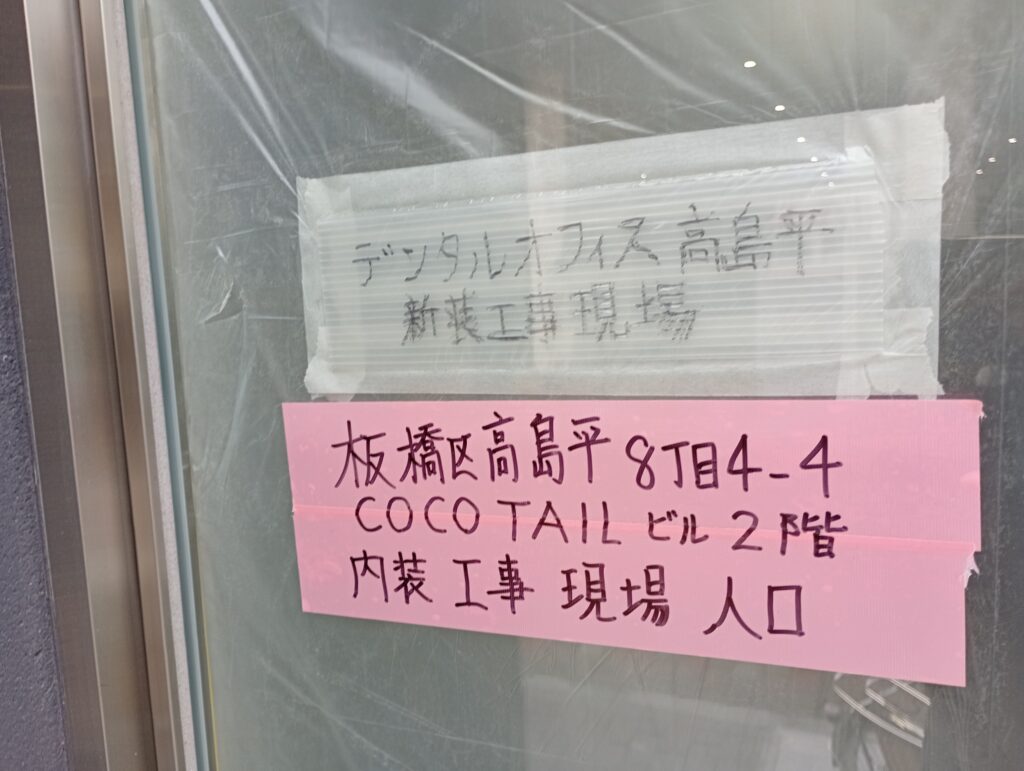 デンタルオフィス高島平
新装工事現場
板橋区高島平8丁目4-4
COCO TAIL ビル 2階
内装工事現場 入口